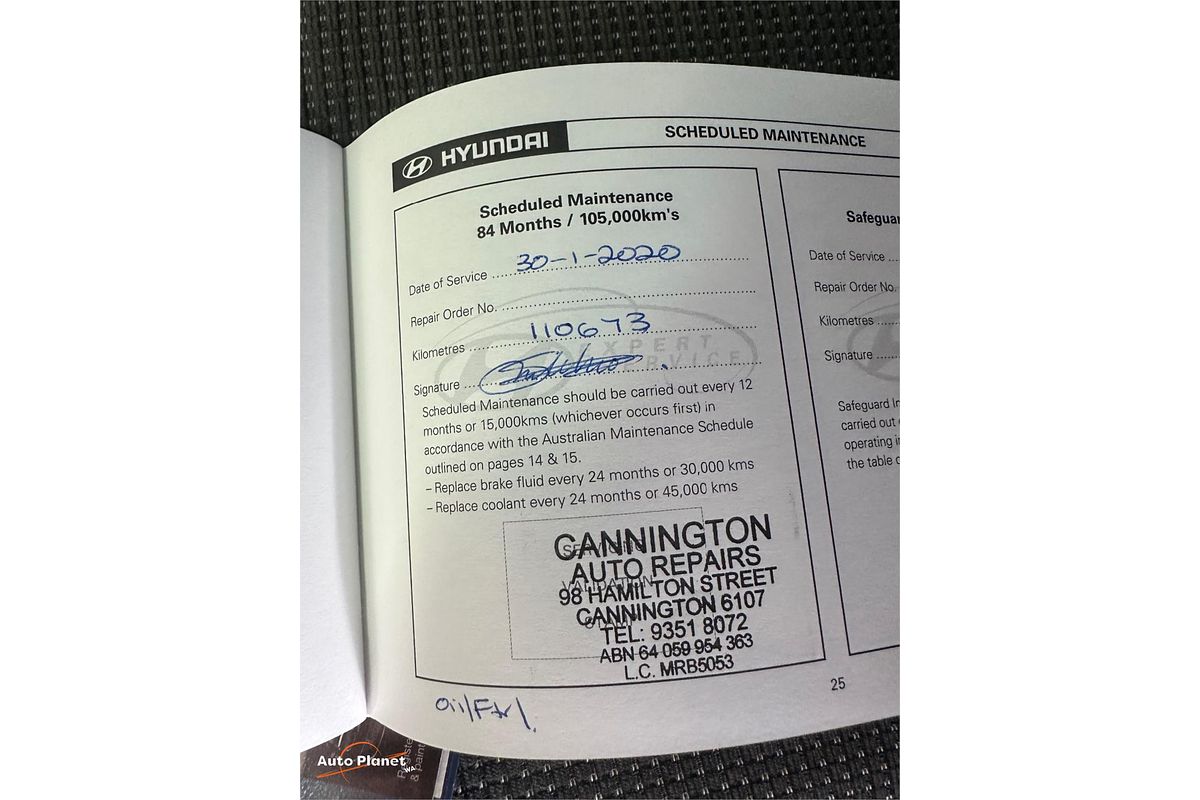 HYUNDAI
SCHEDULED MAINTENANCE
Scheduled Maintenance
84 Months / 105,000km's
Date of Service 30-1-2020
Repair Order No.
Kilometres 110673
EXPERT
SERVICE
Signature
Scheduled Maintenance should be carried out every 12
months or 15,000kms (whichever occurs first) in
accordance with the Australian Maintenance Schedule
outlined on pages 14 & 15.
– Replace brake fluid every 24 months or 30,000 kms
– Replace coolant every 24 months or 45,000 kms
SERVICING
VALIDATION
STAMP
CANNINGTON
AUTO REPAIRS
98 HAMILTON STREET
CANNINGTON 6107
TEL: 9351 8072
ABN 64 059 954 363
L.C. MRB5053
Oil/Ftr/.
Safeguar
Date of Service
Repair Order No.
Kilometres
Signature
Safeguard In
carried out
operating i
the table o
25
Registe
& paint
Auto Planet WA